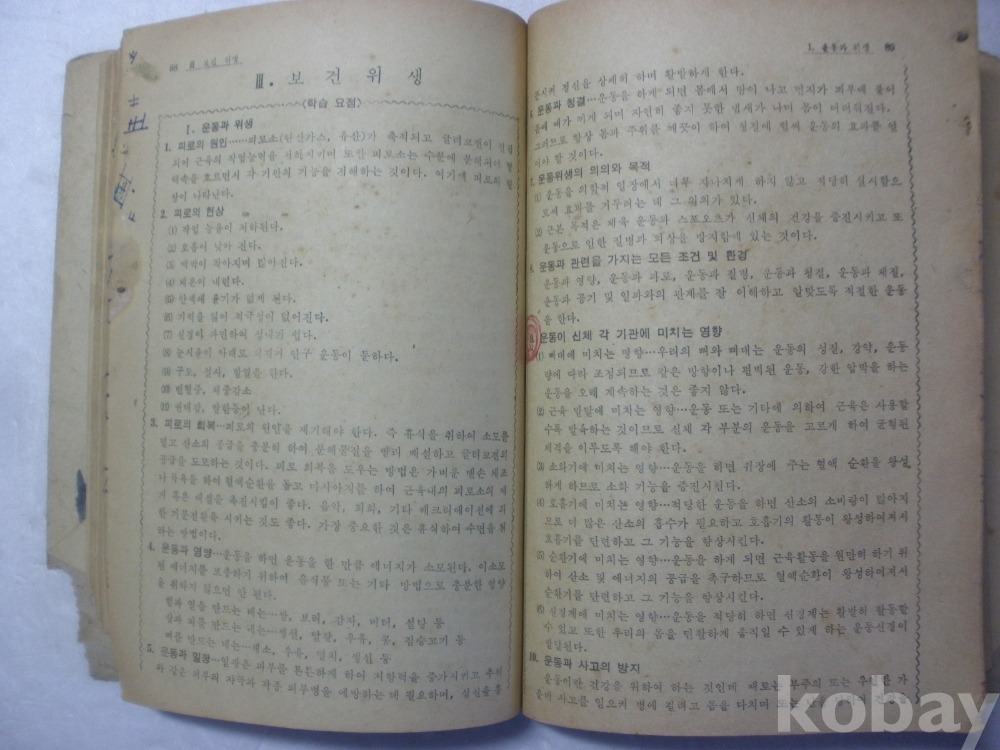 Ⅲ. 보 건 위 생
〈학습 요점〉
Ⅰ. 운동과 위생
1. 피로의 원인……피로소(탄산가스, 유산)가 축적되고 글리코겐이
되어 근육의 작업능력을 저하시키며 또한 피로소는 수분에 용해되어
액속을 흐르면서 각 기관의 기능을 저해하는 것이다. 여기에 피로의 현
상이 나타난다.
2. 피로의 현상
⑴ 작업 능율이 저하된다.
⑵ 호흡이 낮아 진다.
⑶ 맥박이 작아지며 많아진다.
⑷ 체온이 내린다.
⑸ 안색에 윤기가 없게 된다.
⑹ 기력을 잃어 적극성이 없어진다.
⑺ 신경이 과민하여 성내기 쉽다.
⑻ 눈시울이 아래로 안구 운동이 둔하다.
⑼ 구토, 설사, 발열을 한다.
⑽ 빈혈증, 체중감소
⑾ 권태감, 난다.
3. 피로의 회복…피로의 원인을 제거해야 한다. 즉 휴식을 취하여 소모를
덜고 산소의 공급을 충분히 하여 분해물질을 빨리 배설하고 글리코겐의
공급을 도모하는 것이다. 피로 회복을 도우는 방법은 가벼운 맨손 체조
나 목욕을 하여 혈액순환을 돕고 마시아지를 하여 근육내의 피로소의 제
거 혹은 배설을 촉진시킴이 좋다. 음악, 회화, 기타 레크리에이션에 의
한 기분전환을 시키는 것도 좋다. 가장 중요한 것은 휴식하여 수면을
하는 방법이다.
4. 운동과 영양…운동을 하면 운동을 한 만큼 에너지가 소모된다. 이소모
된 에너지를 보충하기 위하여 음식물 또는 기타 방법으로 충분한 영양
을 취하지 않으면 안 된다.
힘과 열을 만드는 데는…쌀, 보리, 감자, 버터, 설탕 등
살과 피를 만드는 데는…생선, 알랄, 우유, 콩, 짐승고기 등
뼈를 만드는 데는…채소, 우유, 멸치, 생선 등
5. 운동과 일광…일광은 피부를 튼튼하게 하여 저항력을 증가시키고 추위
와 같은 피부의 자극과 각종 피부병을 예방하는 데 필요하며, 심신을 흥
Ⅰ. 운동과 위생 89
분시켜 정신을 상쾌히 하며 활발하게 한다.
6. 운동과 청결…운동을 하게 되면 몸에서 땀이 나고 먼지가 피부에 붙어
몸에 때가 끼게 되며 자연히 좋지 못한 냄새가 나며 몸이 더러워진다.
그러므로 항상 몸과 주위를 깨끗이 하여 청결에 힘써 운동의 효과를 얻
어야 할 것이다.
7. 운동위생의 의의와 목적
⑴ 운동을 의학적 입장에서 너무 지나치게 하지 않고 적당히 실시함으
로써 효과를 거두려는 데 그 의의가 있다.
⑵ 근본 목적은 체육 운동과 스포오츠가 신체의 건강을 증진시키고 또
운동으로 인한 질병과 외상을 방지함에 있는 것이다.
8. 운동과 관련을 가지는 모든 조건 및 환경
운동과 영향, 운동과 피로, 운동과 질병, 운동과 청결, 운동과 체질,
운동과 공기 및 일광과의 관계를 잘 이해하고 알맞도록 적절한 운동
을 한다.
운동이 신체 각 기관에 미치는 영향
⑴ 뼈대에 미치는 영향…우리의 뼈와 뼈대는 운동의 성질, 강약, 운동
량에 따라 조정되므로 같은 방향이나 편벽된 운동, 강한 압박을 하는
운동을 오래 계속하는 것은 좋지 않다.
⑵ 근육 발달에 미치는 영향…운동 또는 기타에 의하여 근육은 사용할
수록 발육하는 것이므로 신체 각 부분의 운동을 고르게 하여 균형된
체격을 이루도록 해야 한다.
⑶ 소화기에 미치는 영향…운동을 하면 위장에 주는 혈액 순환을 왕성
하게 하므로 소화 기능을 증진시킨다.
⑷ 호흡기에 미치는 영향…적당한 운동을 하면 산소의 소비량이 많아지
므로 더 많은 산소의 흡수가 필요하고 호흡기의 활동이 왕성하여져서
호흡기를 단련하고 그 기능을 향상시킨다.
⑸ 순환기에 미치는 영향…운동을 하게 되면 근육활동을 원만히 하기 위
하여 산소 및 에너지의 공급을 촉구하므로 혈액순환이 왕성하여져서
순환기를 단련하고 그 기능을 향상시킨다.
⑹ 신경계에 미치는 영향…운동을 적당히 하면 신경계는 활발히 활동할
수 있고 또한 우리의 몸을 민활하게 움직일 수 있게 하는 운동신경이
발달된다.
10. 운동과 사고의 방지
운동이란 건강을 위하여 하는 것인데 때로는 부주의 또는 우연한 가
운데 사고를 일으켜 병에 걸리고 몸을 다치며 또는
kobay